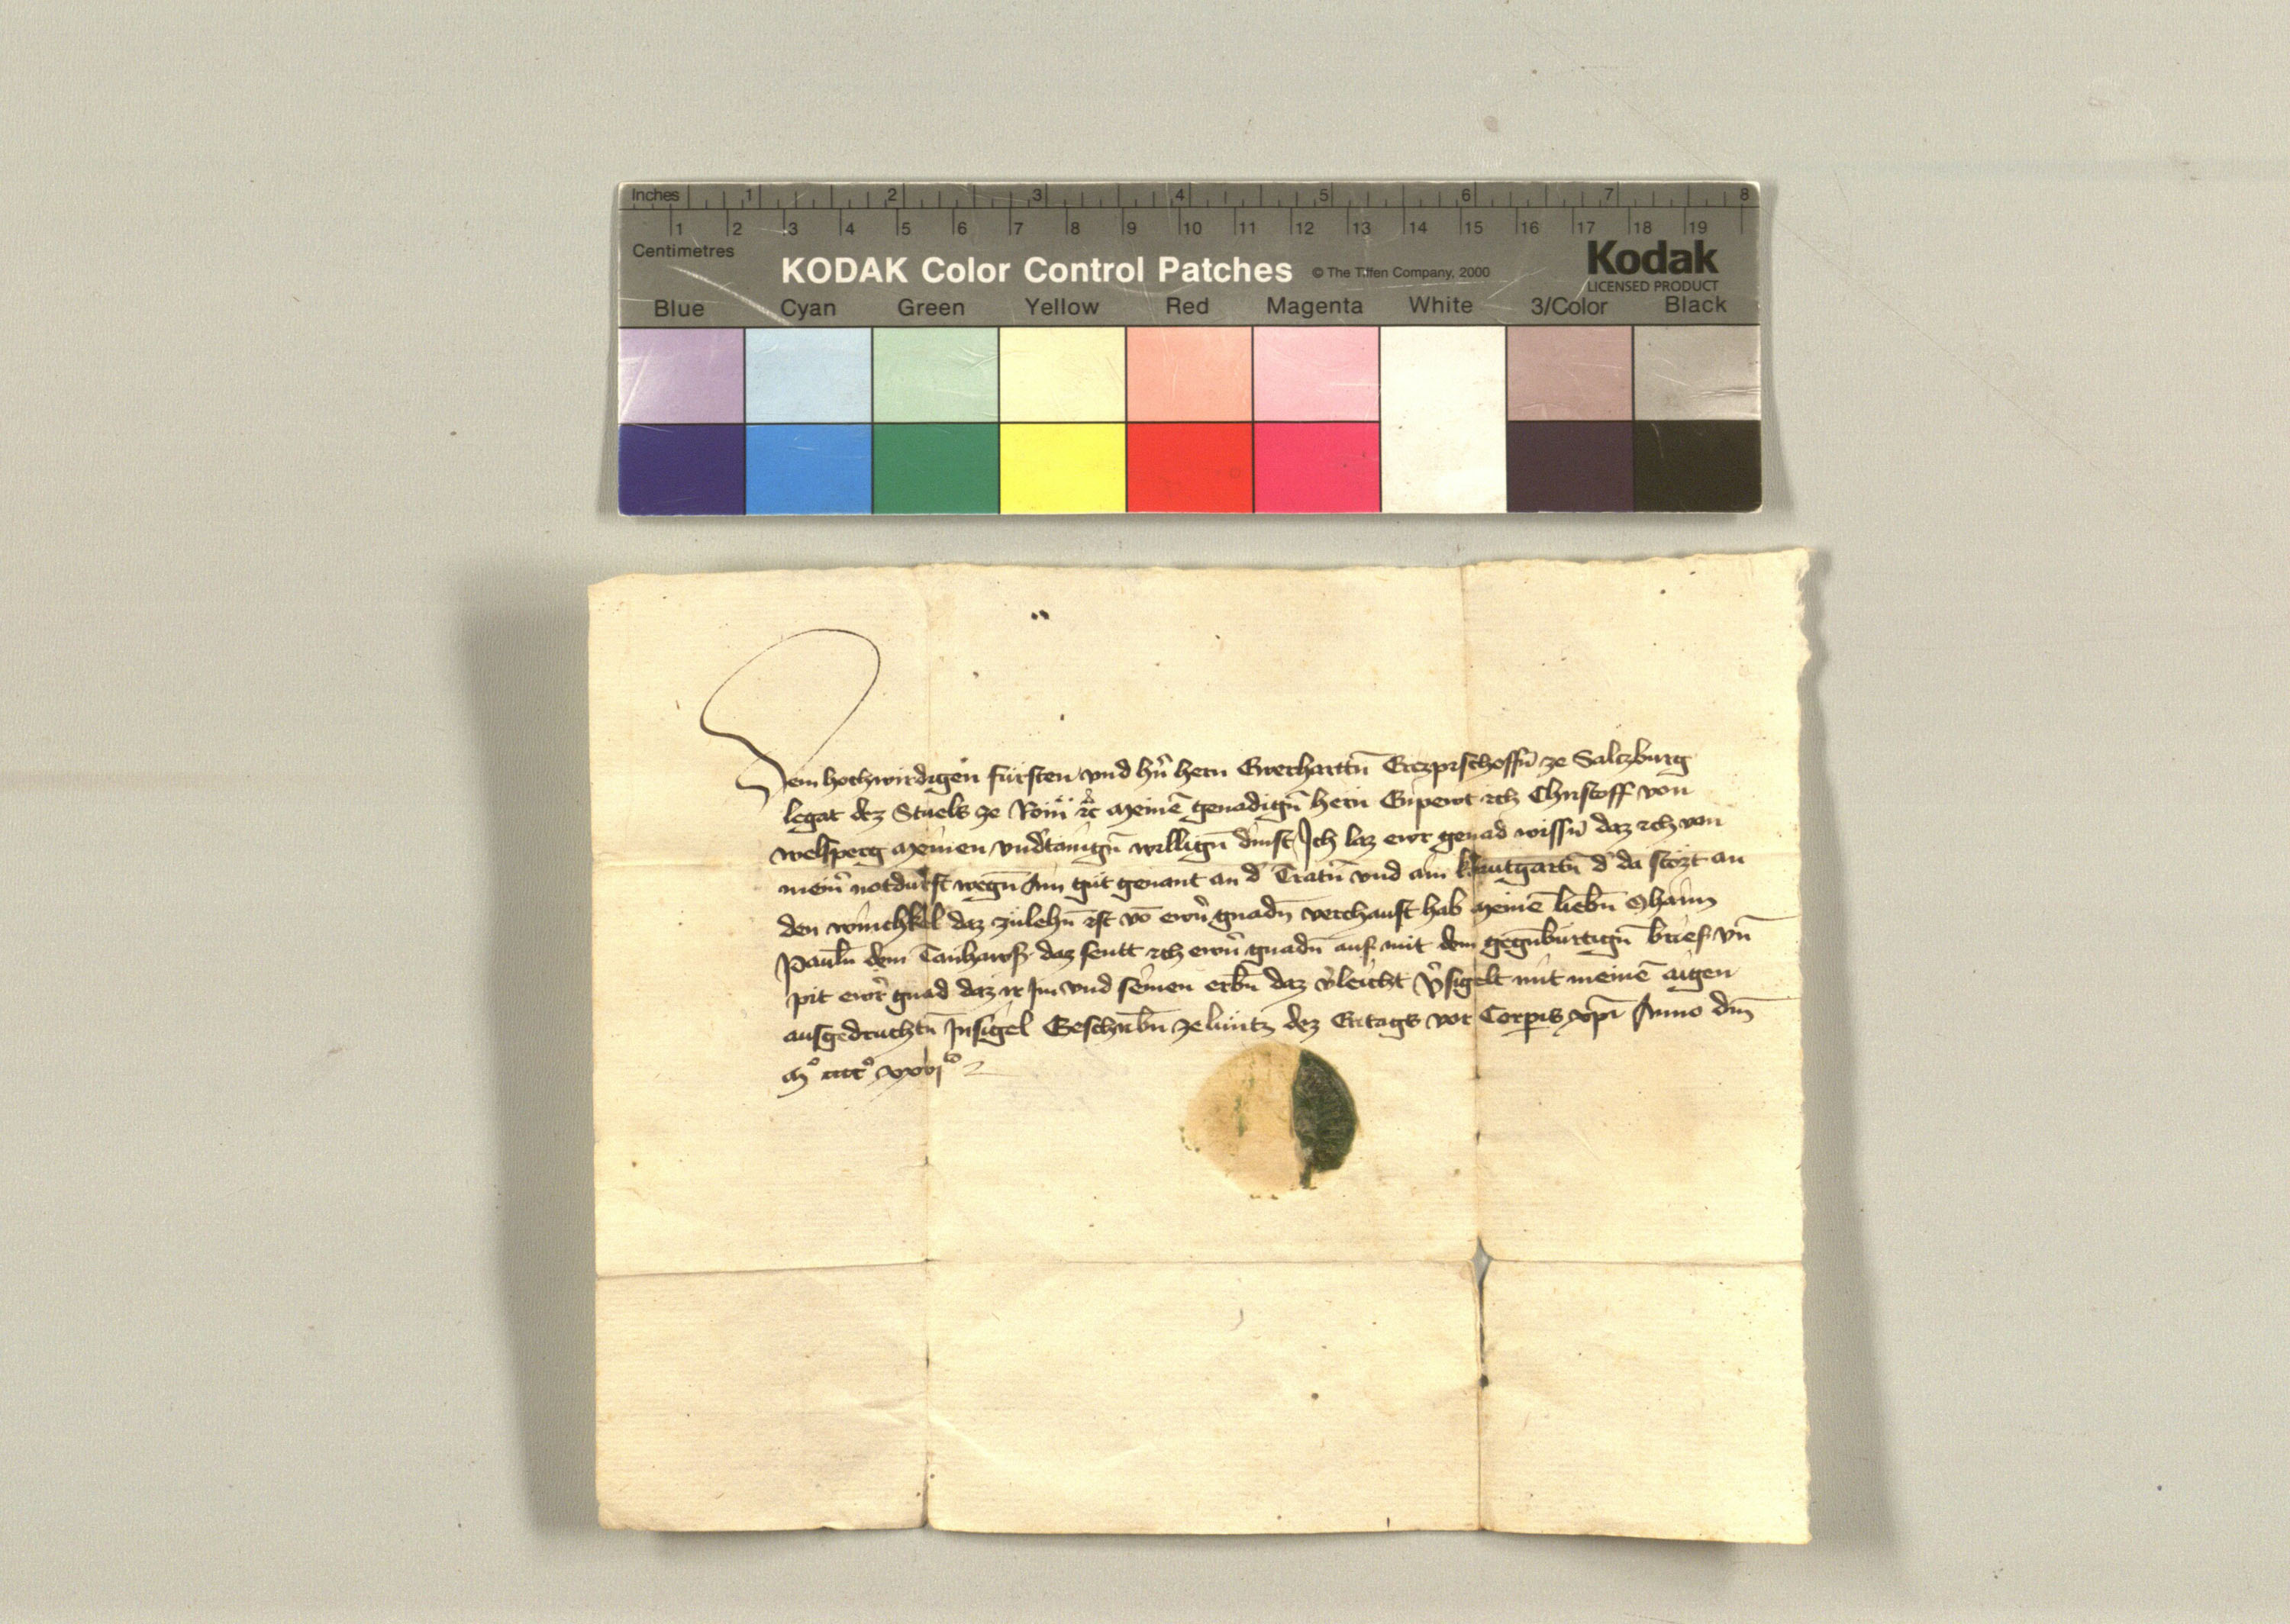 Inches 1 2 3 4 5 6 7 8
1 2 3 4 5 6 7 8 9 10 11 12 13 14 15 16 17 18 19
Centimetres
KODAK Color Control Patches © The Tiffen Company, 2000 Kodak
LICENSED PRODUCT
Blue Cyan Green Yellow Red Magenta White 3/Color Black
Dem hochwirdigen fürsten vnd hn̄ hern Everharttn̄ Erczpischoffn̄ ze Salczburg
legat dez Stuels ze Rom ꝛc meinē genadign̄ hern Enpewt ich Christoff von
welsperg meinen vnd̓tanign̄ willign̄ dinst Ich laz ewr genad wissn̄ daz ich von
mein̓ notdurft wegn̄ Ain gut genant an d̓ Tratn̄ vnd ain krautgartn̄ d̓ da stözt an
den winchkel daz zulehn̄ ist vō ewrn̄ gnadn̄ verchauft hab meinē liebn̄ Ohaim
Pauln̄ dem Tanhawsz daz sentt ich ewrn̄ gnadn̄ auf mit dem gegnburtign̄ brief vn̄
pit ewr̓ gnad daz ir Im vnd seinen erbn̄ daz v̓leicht v̓sigelt mit meinē aigen
aufgedruchtn̄ Insigel Geschribn̄ ze lüntz dez Eritags vor Corpis xp̄i Anno dm̄
mº ccccº xxvjᵗᵒ